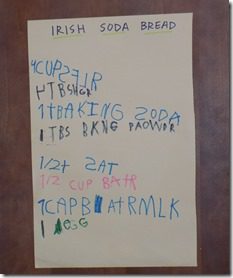 IRISH SODA BREAD
4CUPSƧELR
4TBSHGR
1tBAKING SODA
1TBS BKNG PAOWDR
1/2t SAT
1/2 CUP BAtR
1CAPB AtRMLK
1 eGG